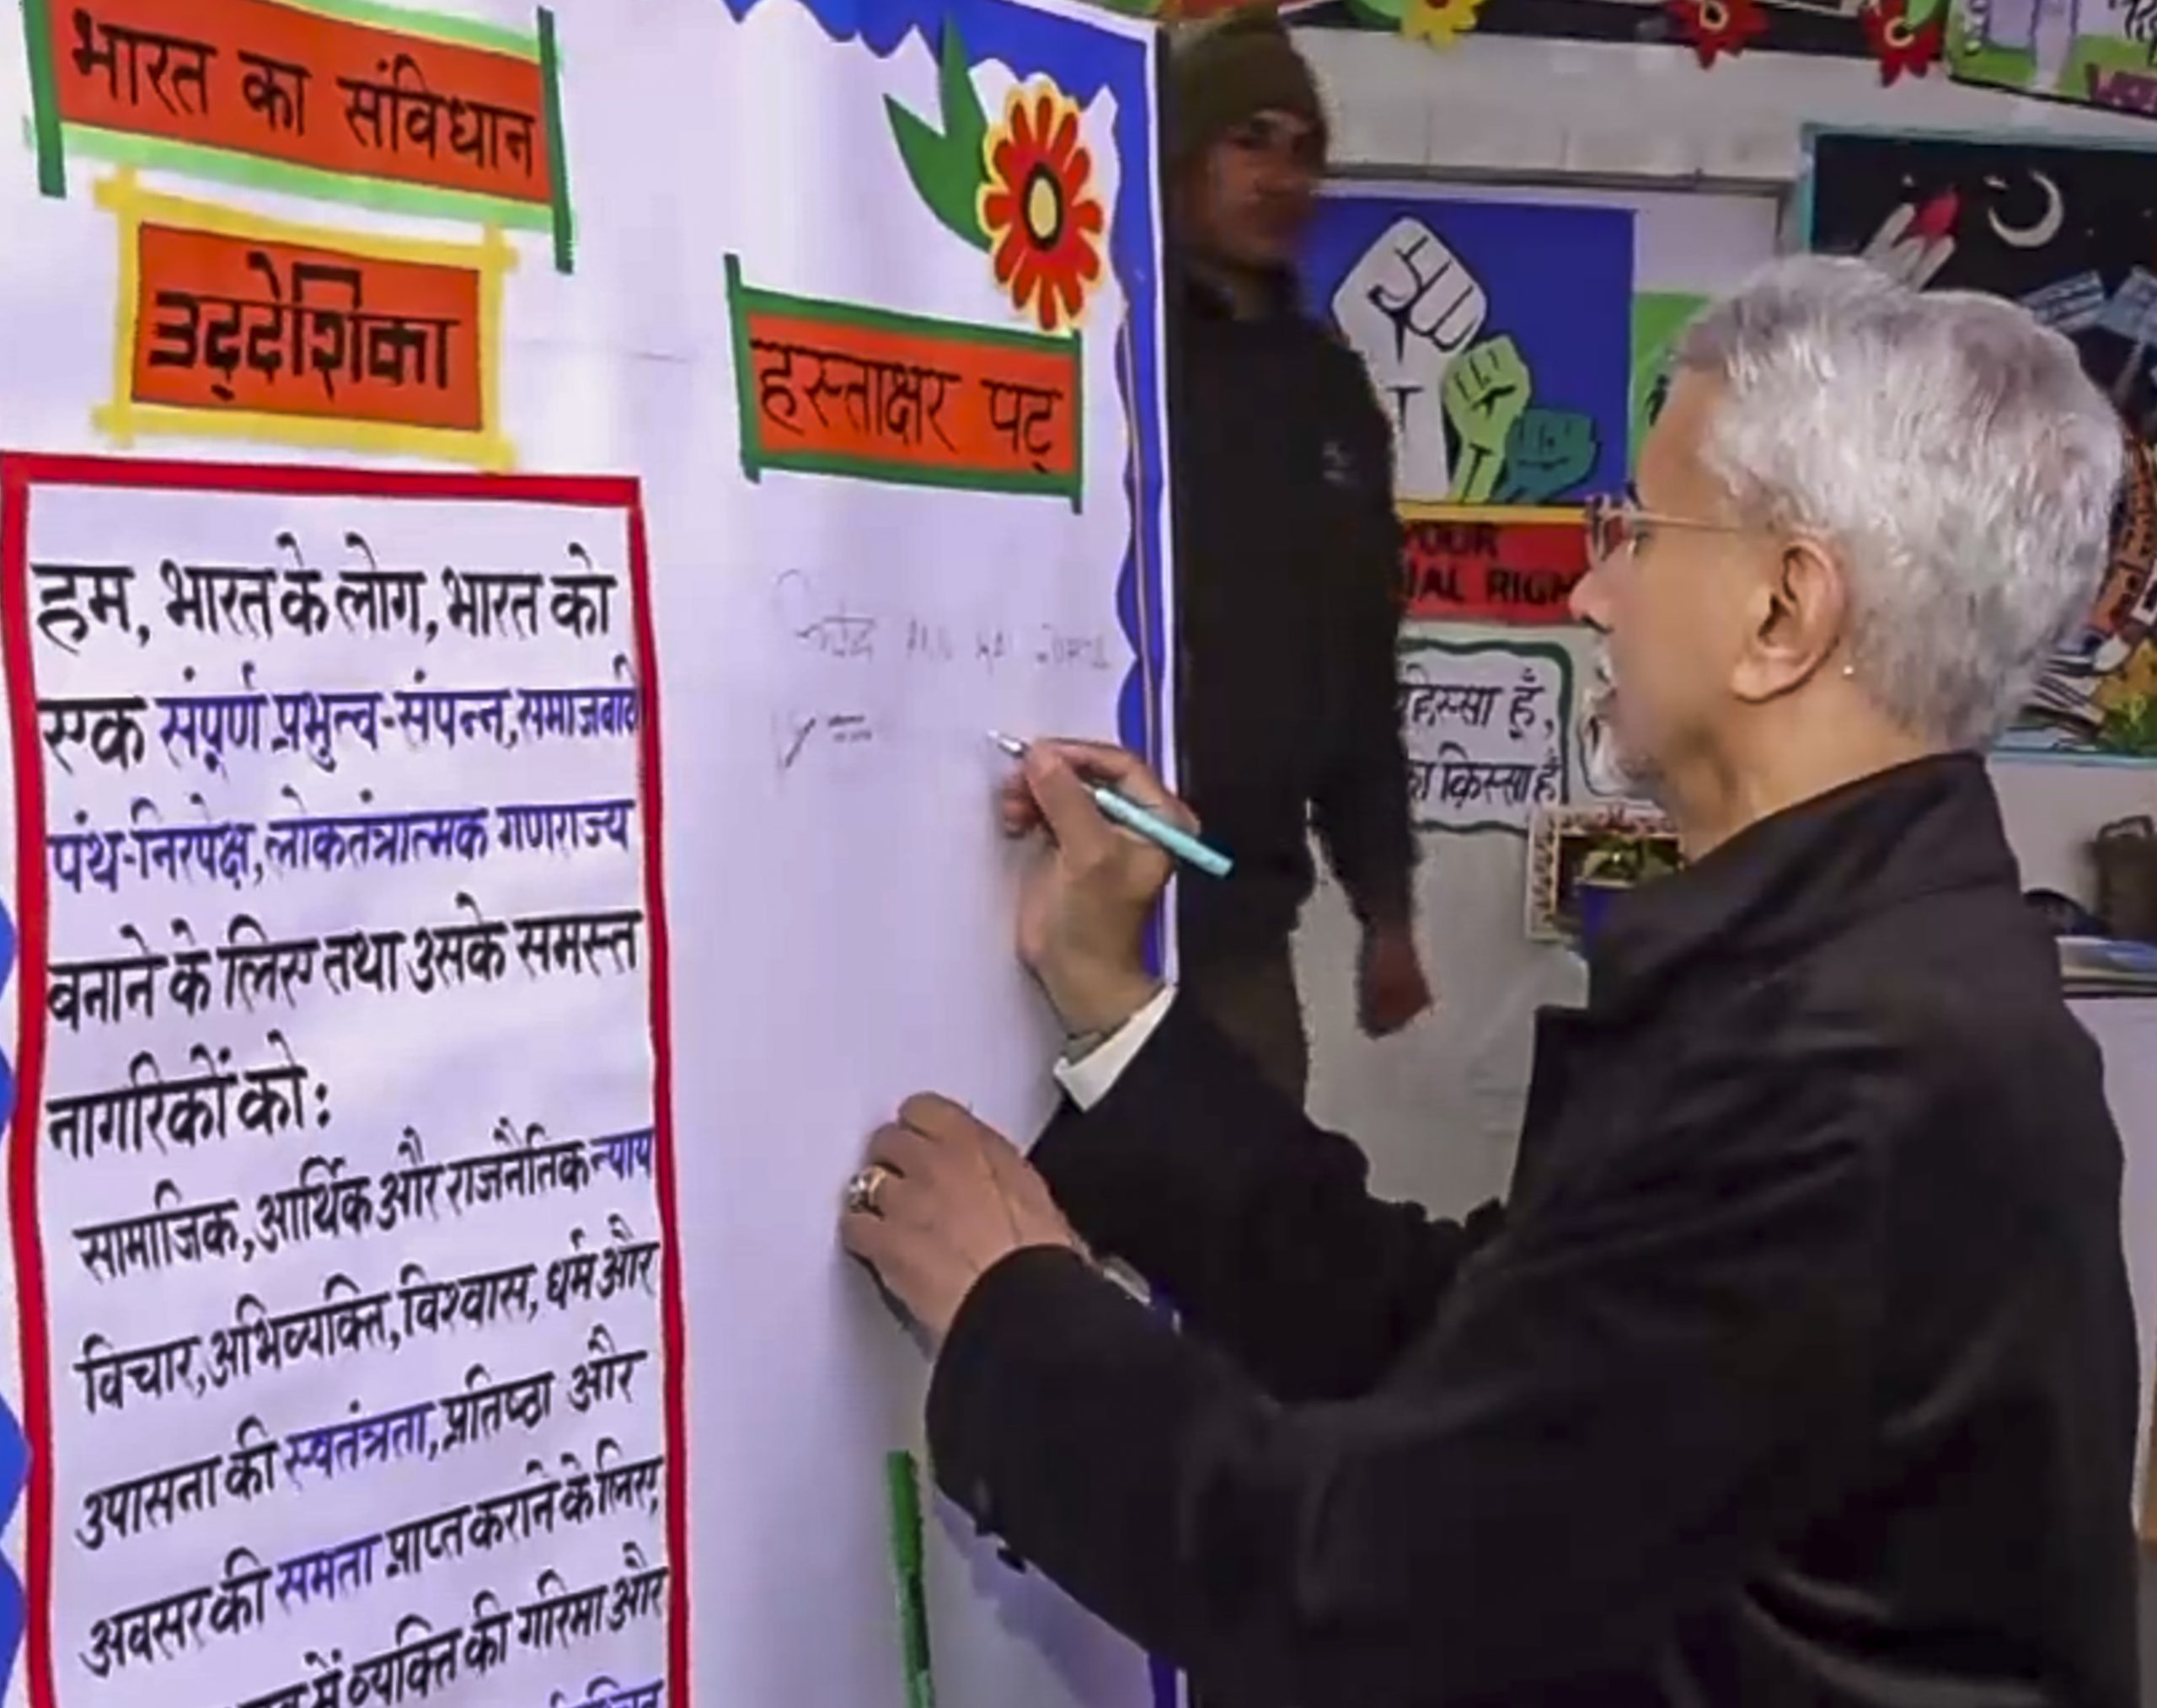 भारत का संविधान
उद्देशिका
हम, भारत के लोग, भारत को
एक संपूर्ण प्रभुत्व-संपन्न, समाजवादी
पंथ-निरपेक्ष, लोकतंत्रात्मक गणराज्य
बनाने के लिए तथा उसके समस्त
नागरिकों को:
सामाजिक, आर्थिक और राजनैतिक न्याय
विचार, अभिव्यक्ति, विश्वास, धर्म और
उपासना की स्वतंत्रता, प्रतिष्ठा और
अवसर की समता प्राप्त कराने के लिए,
में व्यक्ति की गरिमा और
हस्ताक्षर पट्
RIGH
हिस्सा हूँ,
किस्सा हूँ